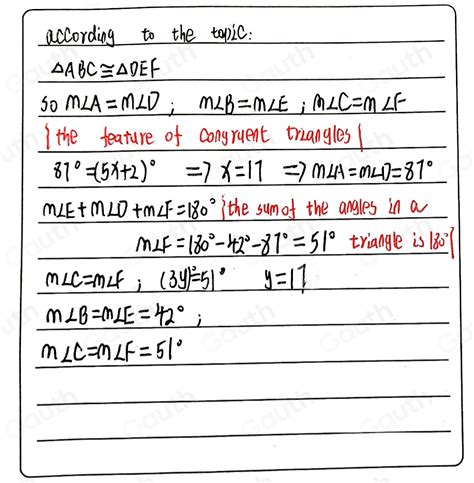 according to the topic:
△ABC≅△DEF
so m∠A=m∠D ; m∠B=m∠E ; m∠C=m∠F
{the feature of congruent triangles}
87°=(5x+2)° => x=17 => m∠A=m∠D=87°
m∠E+m∠D+m∠F=180° {the sum of the angles in a
m∠F=180°-42°-87°=51° triangle is 180°}
m∠C=m∠F ; (3y)°=51° y=17
m∠B=m∠E=42° ;
m∠C=m∠F=51°